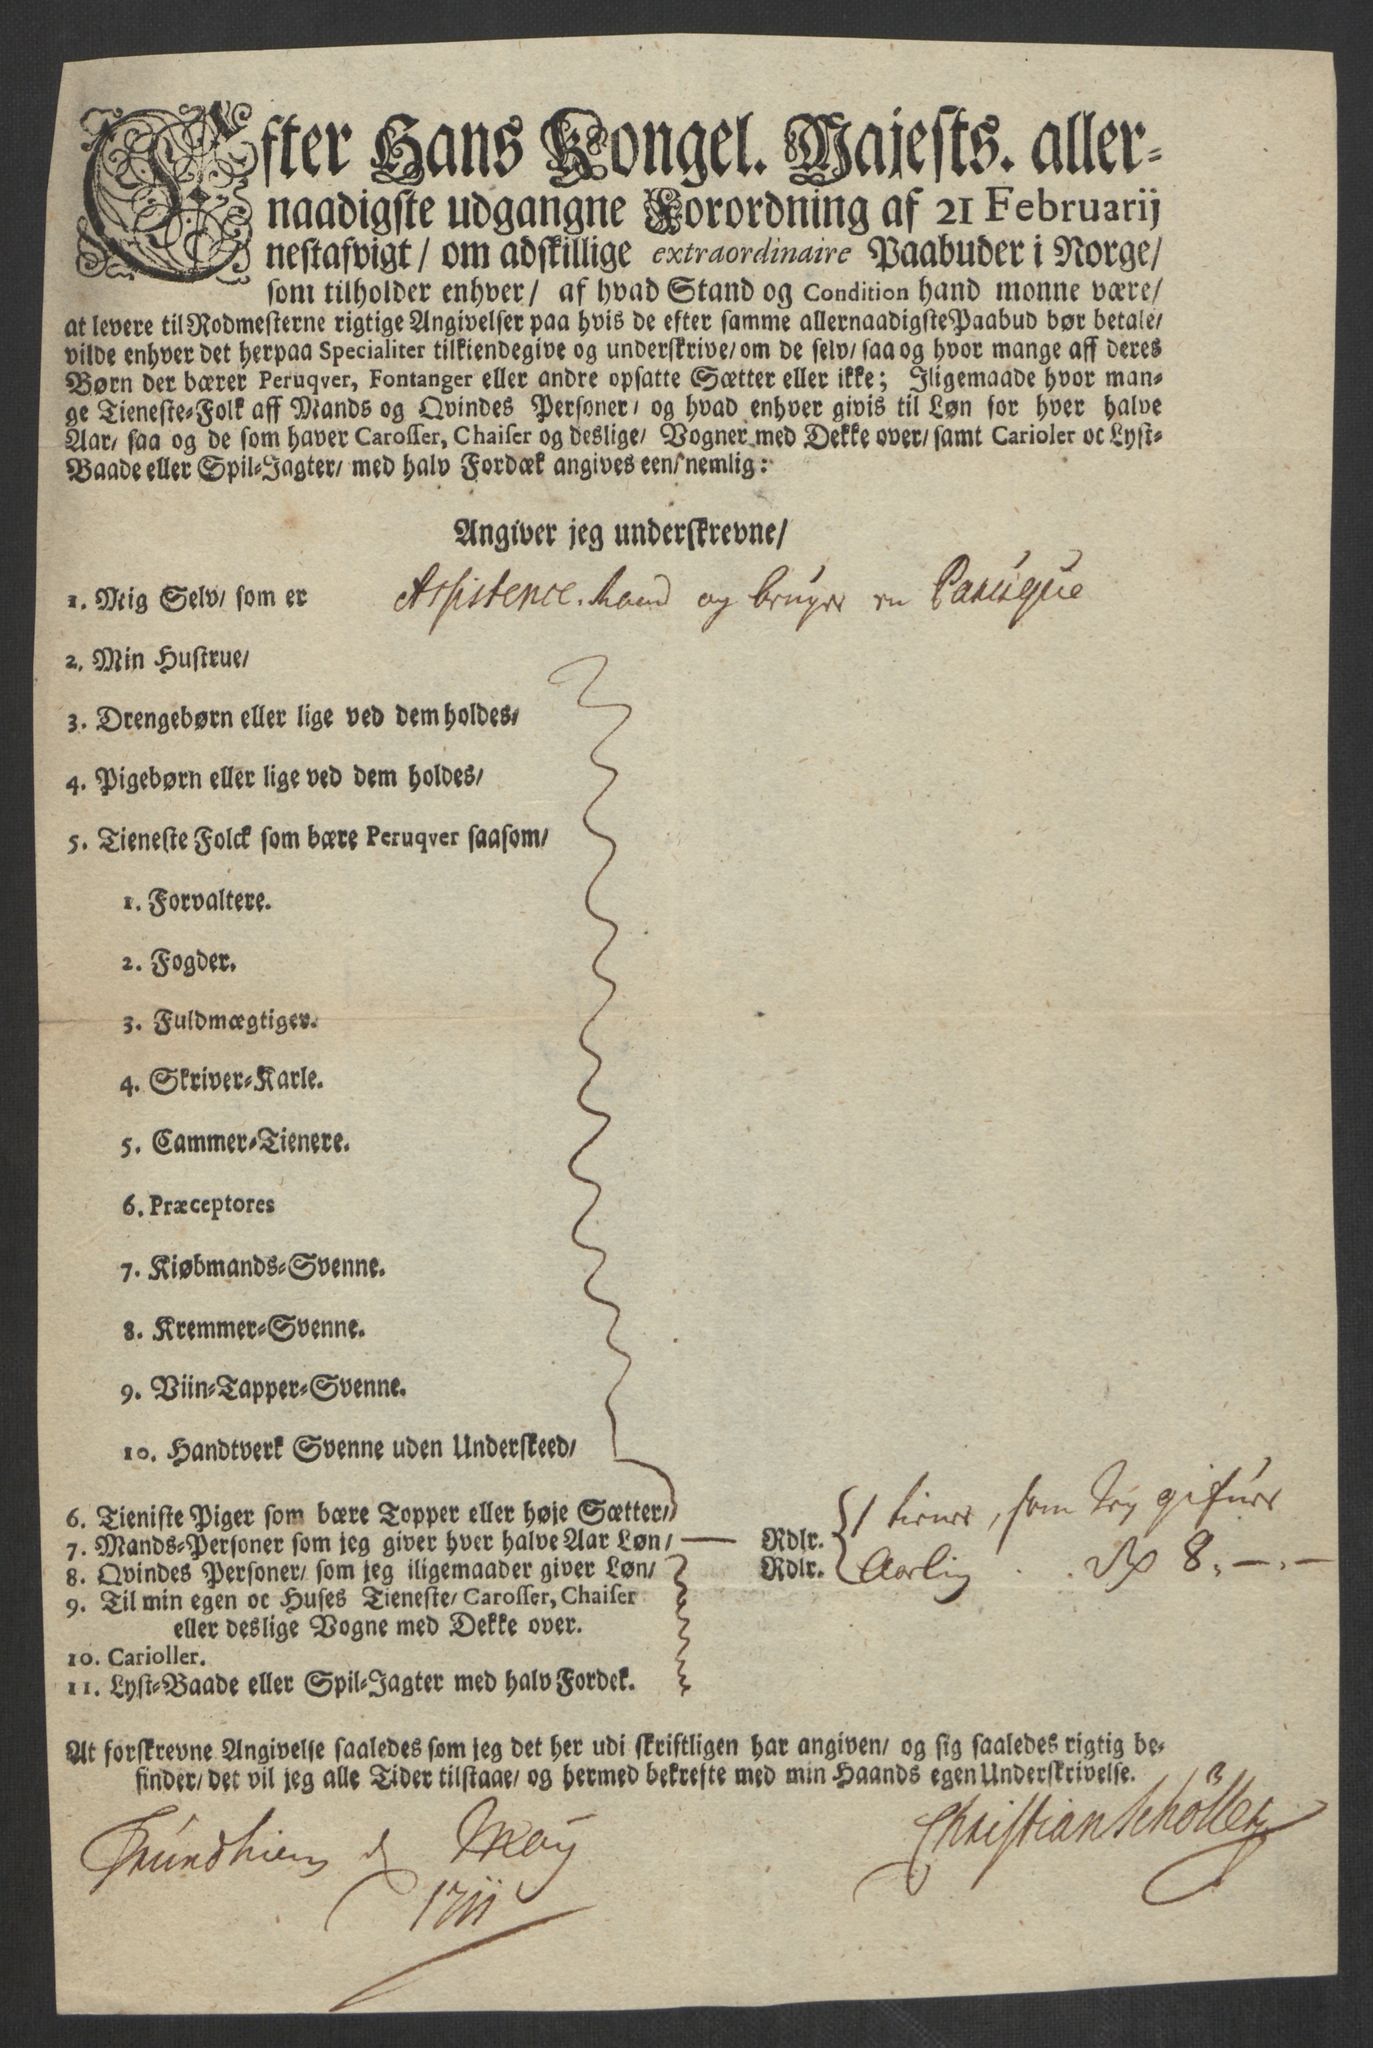 Efter Hans Kongel. Majests. aller-
naadigste udgangne Forordning af 21 Februarij
nestafvigt/ om adskillige extraordinaire Paabuder i Norge/
som tilholder enhver/ af hvad Stand og Condition hand monne være/
at levere til Rodmesterne rigtige Angivelser paa hvis de efter samme allernaadigste Paabud bør betale/
vilde enhver det herpaa Specialiter tilkiendegive og underskrive/ om de selv/ saa og hvor mange aff deres
Børn der bærer Peruqver, Fontanger eller andre opsatte Sætter eller ikke; Iligemaade hvor man-
ge Tieneste-Folk aff Mands og Qvindes Personer/ og hvad enhver givis til Løn for hver halve
Aar/ saa og de som haver Carosser, Chaiser og deslige/ Vogner med Dekke over/ samt Carioler oc Lyst-
Baade eller Spil-Jagter/ med halv Fordæk angives een/ nemlig:
Angiver jeg underskrevne/
1. Mig Selv/ som er Assistence. Raad og bruger en Paruque
2. Min Hustrue/
3. Drengebørn eller lige ved dem holdes/
4. Pigebørn eller lige ved dem holdes/
5. Tieneste Folck som bære Peruqver saasom/
1. Forvaltere.
2. Fogder.
3. Fuldmægtiger.
4. Skriver-Karle.
5. Cammer-Tienere.
6. Præceptores
7. Kiøbmands-Svenne.
8. Kremmer-Svenne.
9. Viin-Tapper-Svenne.
10. Handtverk Svenne uden Underskeed/
6. Tieniste Piger som bære Topper eller høje Sætter/
7. Mands-Personer som jeg giver hver halve Aar Løn/ — Rdlr. 1 tiener, som jeg gifuer
8. Qvindes Personer/ som jeg iligemaader giver Løn/ Rdlr. Aarlig . . 8. — . —
9. Til min egen oc Huses Tieneste/ Carosser, Chaiser
eller deslige Vogne med Dekke over.
10. Carioller.
11. Lyst-Baade eller Spil-Jagter med halv Fordek.
At forskrevne Angivelse saaledes som jeg det her udi skriftligen har angiven/ og sig saaledes rigtig be-
finder/ det vil jeg alle Tider tilstaae/ og hermed bekrefte med min Haands egen Underskrivelse.
Trundhiem d May
1711
Christian Schöller